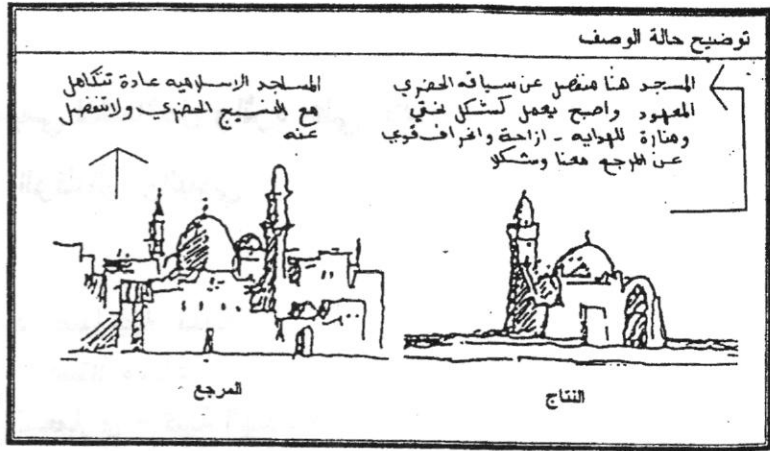 توضيح حالة الوصف
المسجد هنا منفصل عن سياقه الحضري
المعهود واصبح يعمل كشكل نحتي
ومنارة للهداية - ازاحة وانحراف قوي
عن المرجع معنا وشكلا
المساجد الاسلاميه عادة تتكامل
مع النسيج الحضري ولا تنفصل
عنه
النتاج
المرجع